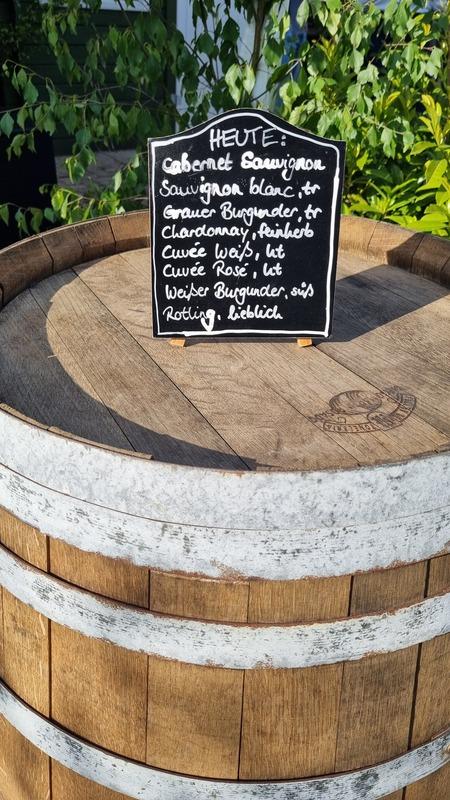 HEUTE:
Cabernet Sauvignon
Sauvignon blanc, tr
Grauer Burgunder, tr
Chardonnay, feinherb
Cuvée Weiß, ht
Cuvée Rosé, ht
Weißer Burgunder, süß
Rotling, lieblich